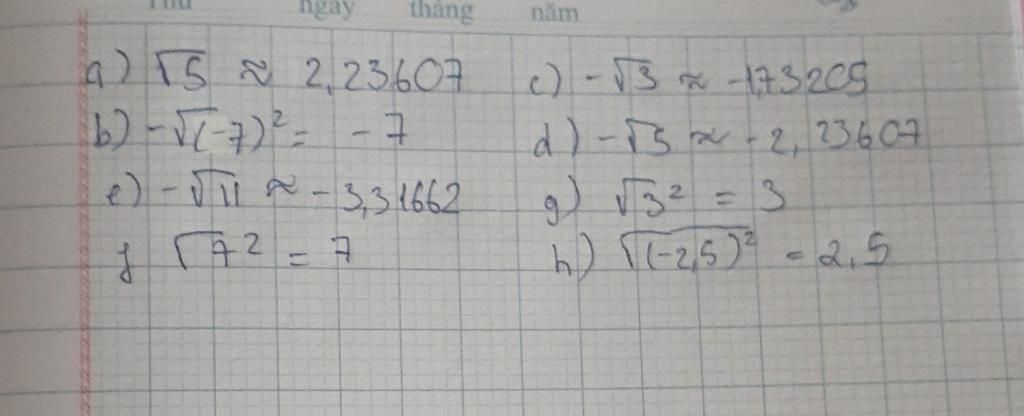 Thứ ngày tháng năm
a) √5 ≈ 2,23607 c) -√3 ≈ -1,73205
b) -√(-7)² = -7 d) -√5 ≈ -2,23607
e) -√11 ≈ -3,31662 g) √3² = 3
f √7² = 7 h) √(-2,5)² = 2,5